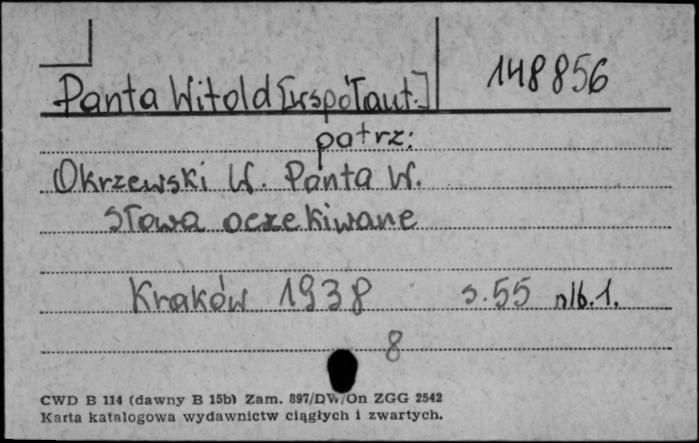 Panta Witold [współaut.]
148856
patrz:
Okrzewski W. Panta W.
Słowa oczekiwane
Kraków 1938 s. 55 nlb. 1.
8
CWD B 114 (dawny B 15b) Zam. 897/DW/On ZGG 2542
Karta katalogowa wydawnictw ciągłych i zwartych.